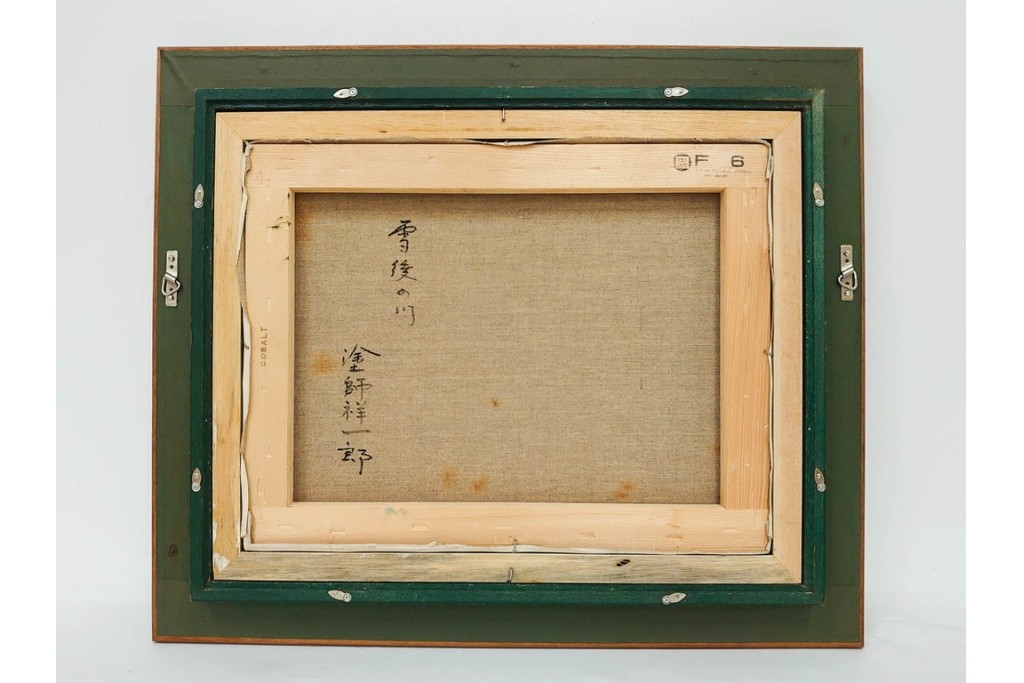 雪後の川
塗師祥一郎
F 6
COBALT